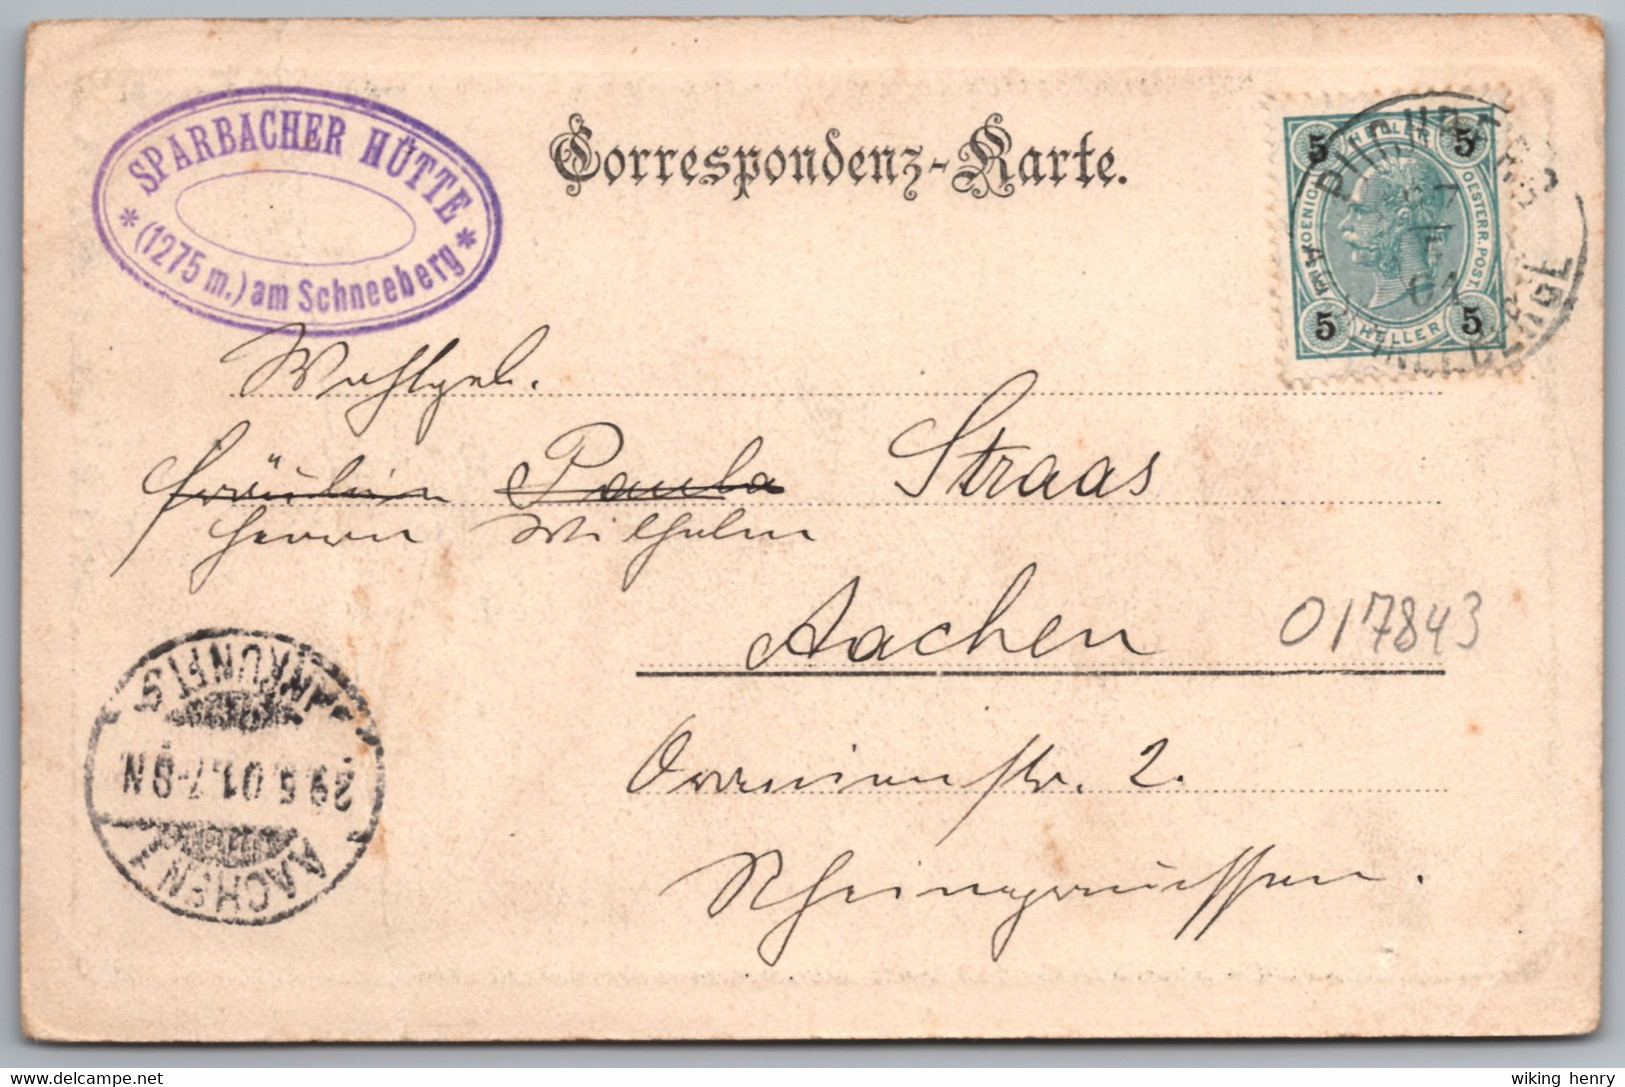 SPARBACHER HÜTTE
* (1275 m.) am Schneeberg *
Correspondenz-Karte.
5 HELLER 5
OESTERR. POST.
5 HELLER 5
01
Wohlgeb.
Fräulein Paula Straas
Herrn Wilhelm
Aachen
017843
2.
Rheinpreussen.
ANKUNFTS
29.5.01.7-8N
AACHEN 1
delcampe.net
wiking henry